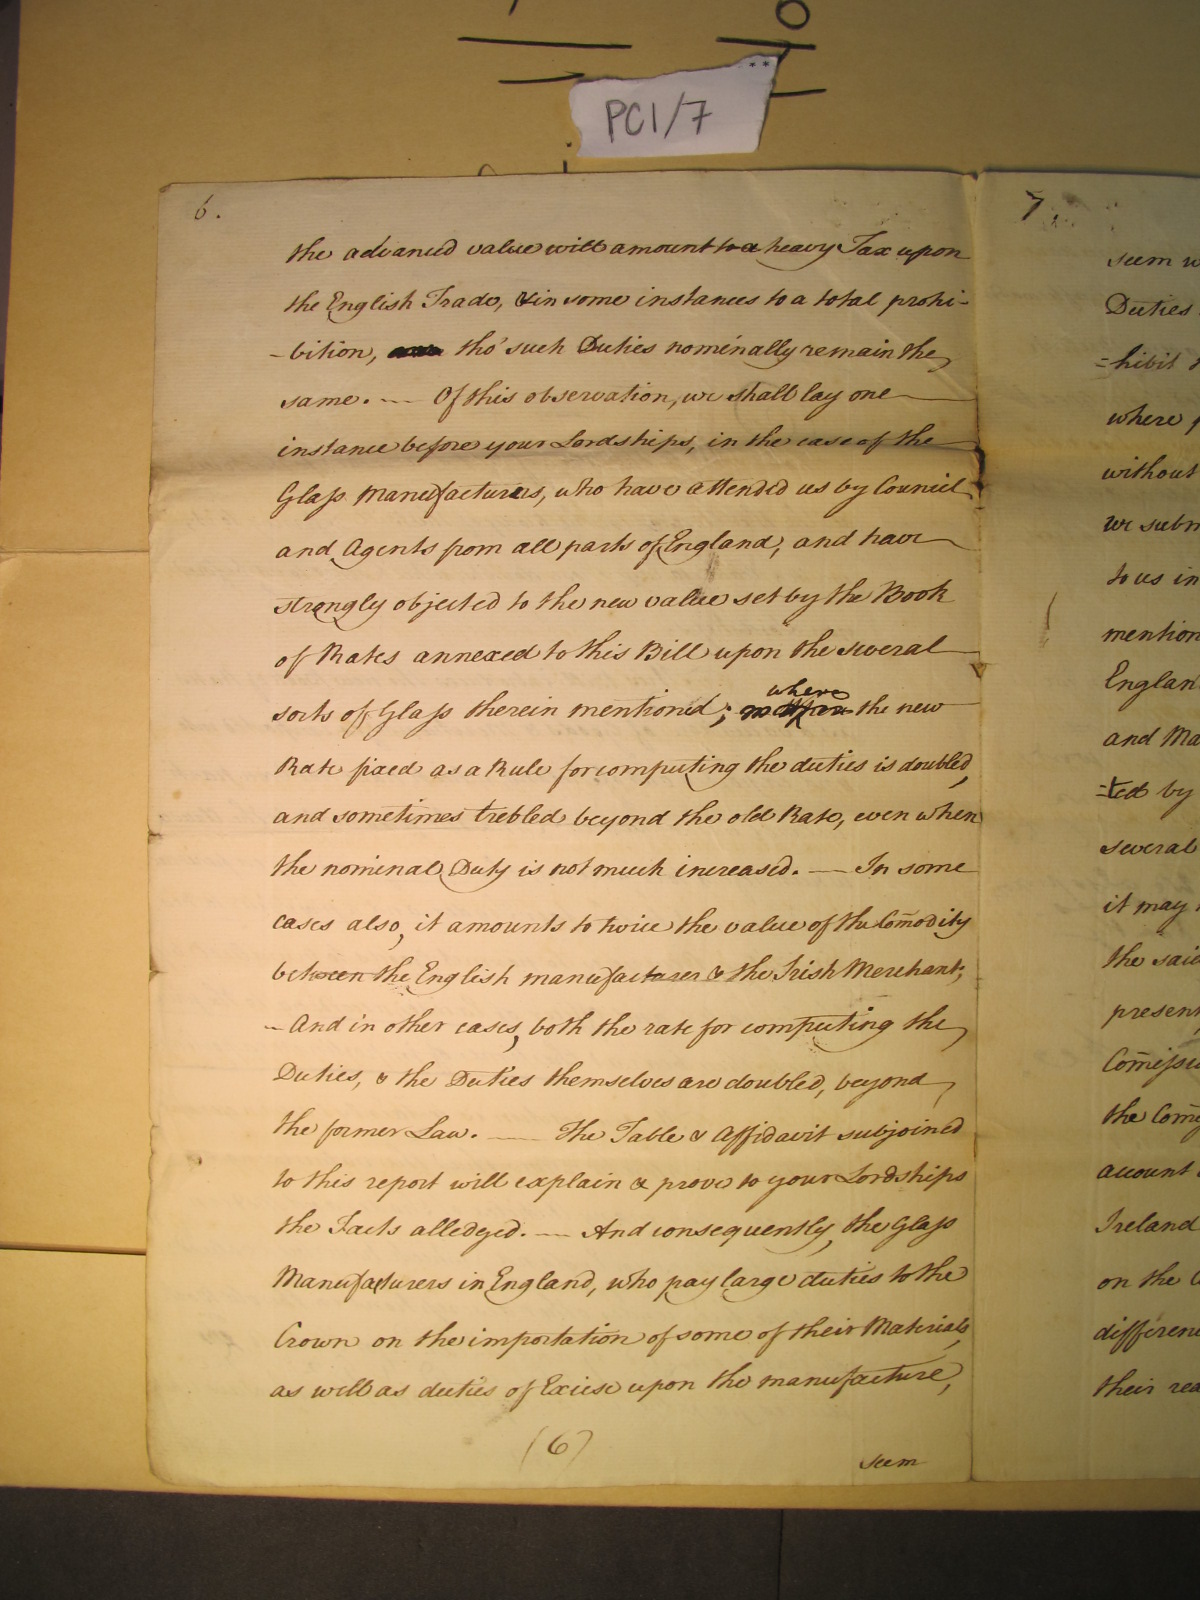 PC1/7
6.
the advanced value will amount to a heavy Tax upon
the English Trade, & in some instances to a total prohi-
-bition, tho' such Duties nominally remain the
same. — Of this observation, we shall lay one
instance before your Lordships, in the case of the
Glass Manufacturers, who have attended us by Council
and Agents from all parts of England, and have
strongly objected to the new value set by the Book
of Rates annexed to this Bill upon the several
sorts of Glass therein mentioned; where the new
Rate fixed as a Rule for computing the duties is doubled,
and sometimes trebled beyond the old Rate, even when
the nominal Duty is not much increased. — In some
cases also, it amounts to twice the value of the Com̄odity
between the English manufacturer & the Irish Merchant;
- And in other cases, both the rate for computing the
Duties, & the Duties themselves are doubled, beyond
the former Law. — The Table & Affidavit subjoined
to this report will explain & prove to your Lordships
the Facts alledged. — And consequently, the Glass
Manufacturers in England, who pay large duties to the
Crown on the importation of some of their Materials,
as well as duties of Excise upon the manufacture,
(6)
seem
7.
seem
Duties
=hibit
where
without
we subm
to us in
mention
Englan
and Ma
=ted by
several
it may
the said
present
Com̄issi
the Com̄
account
Ireland
on the
differen
their rea